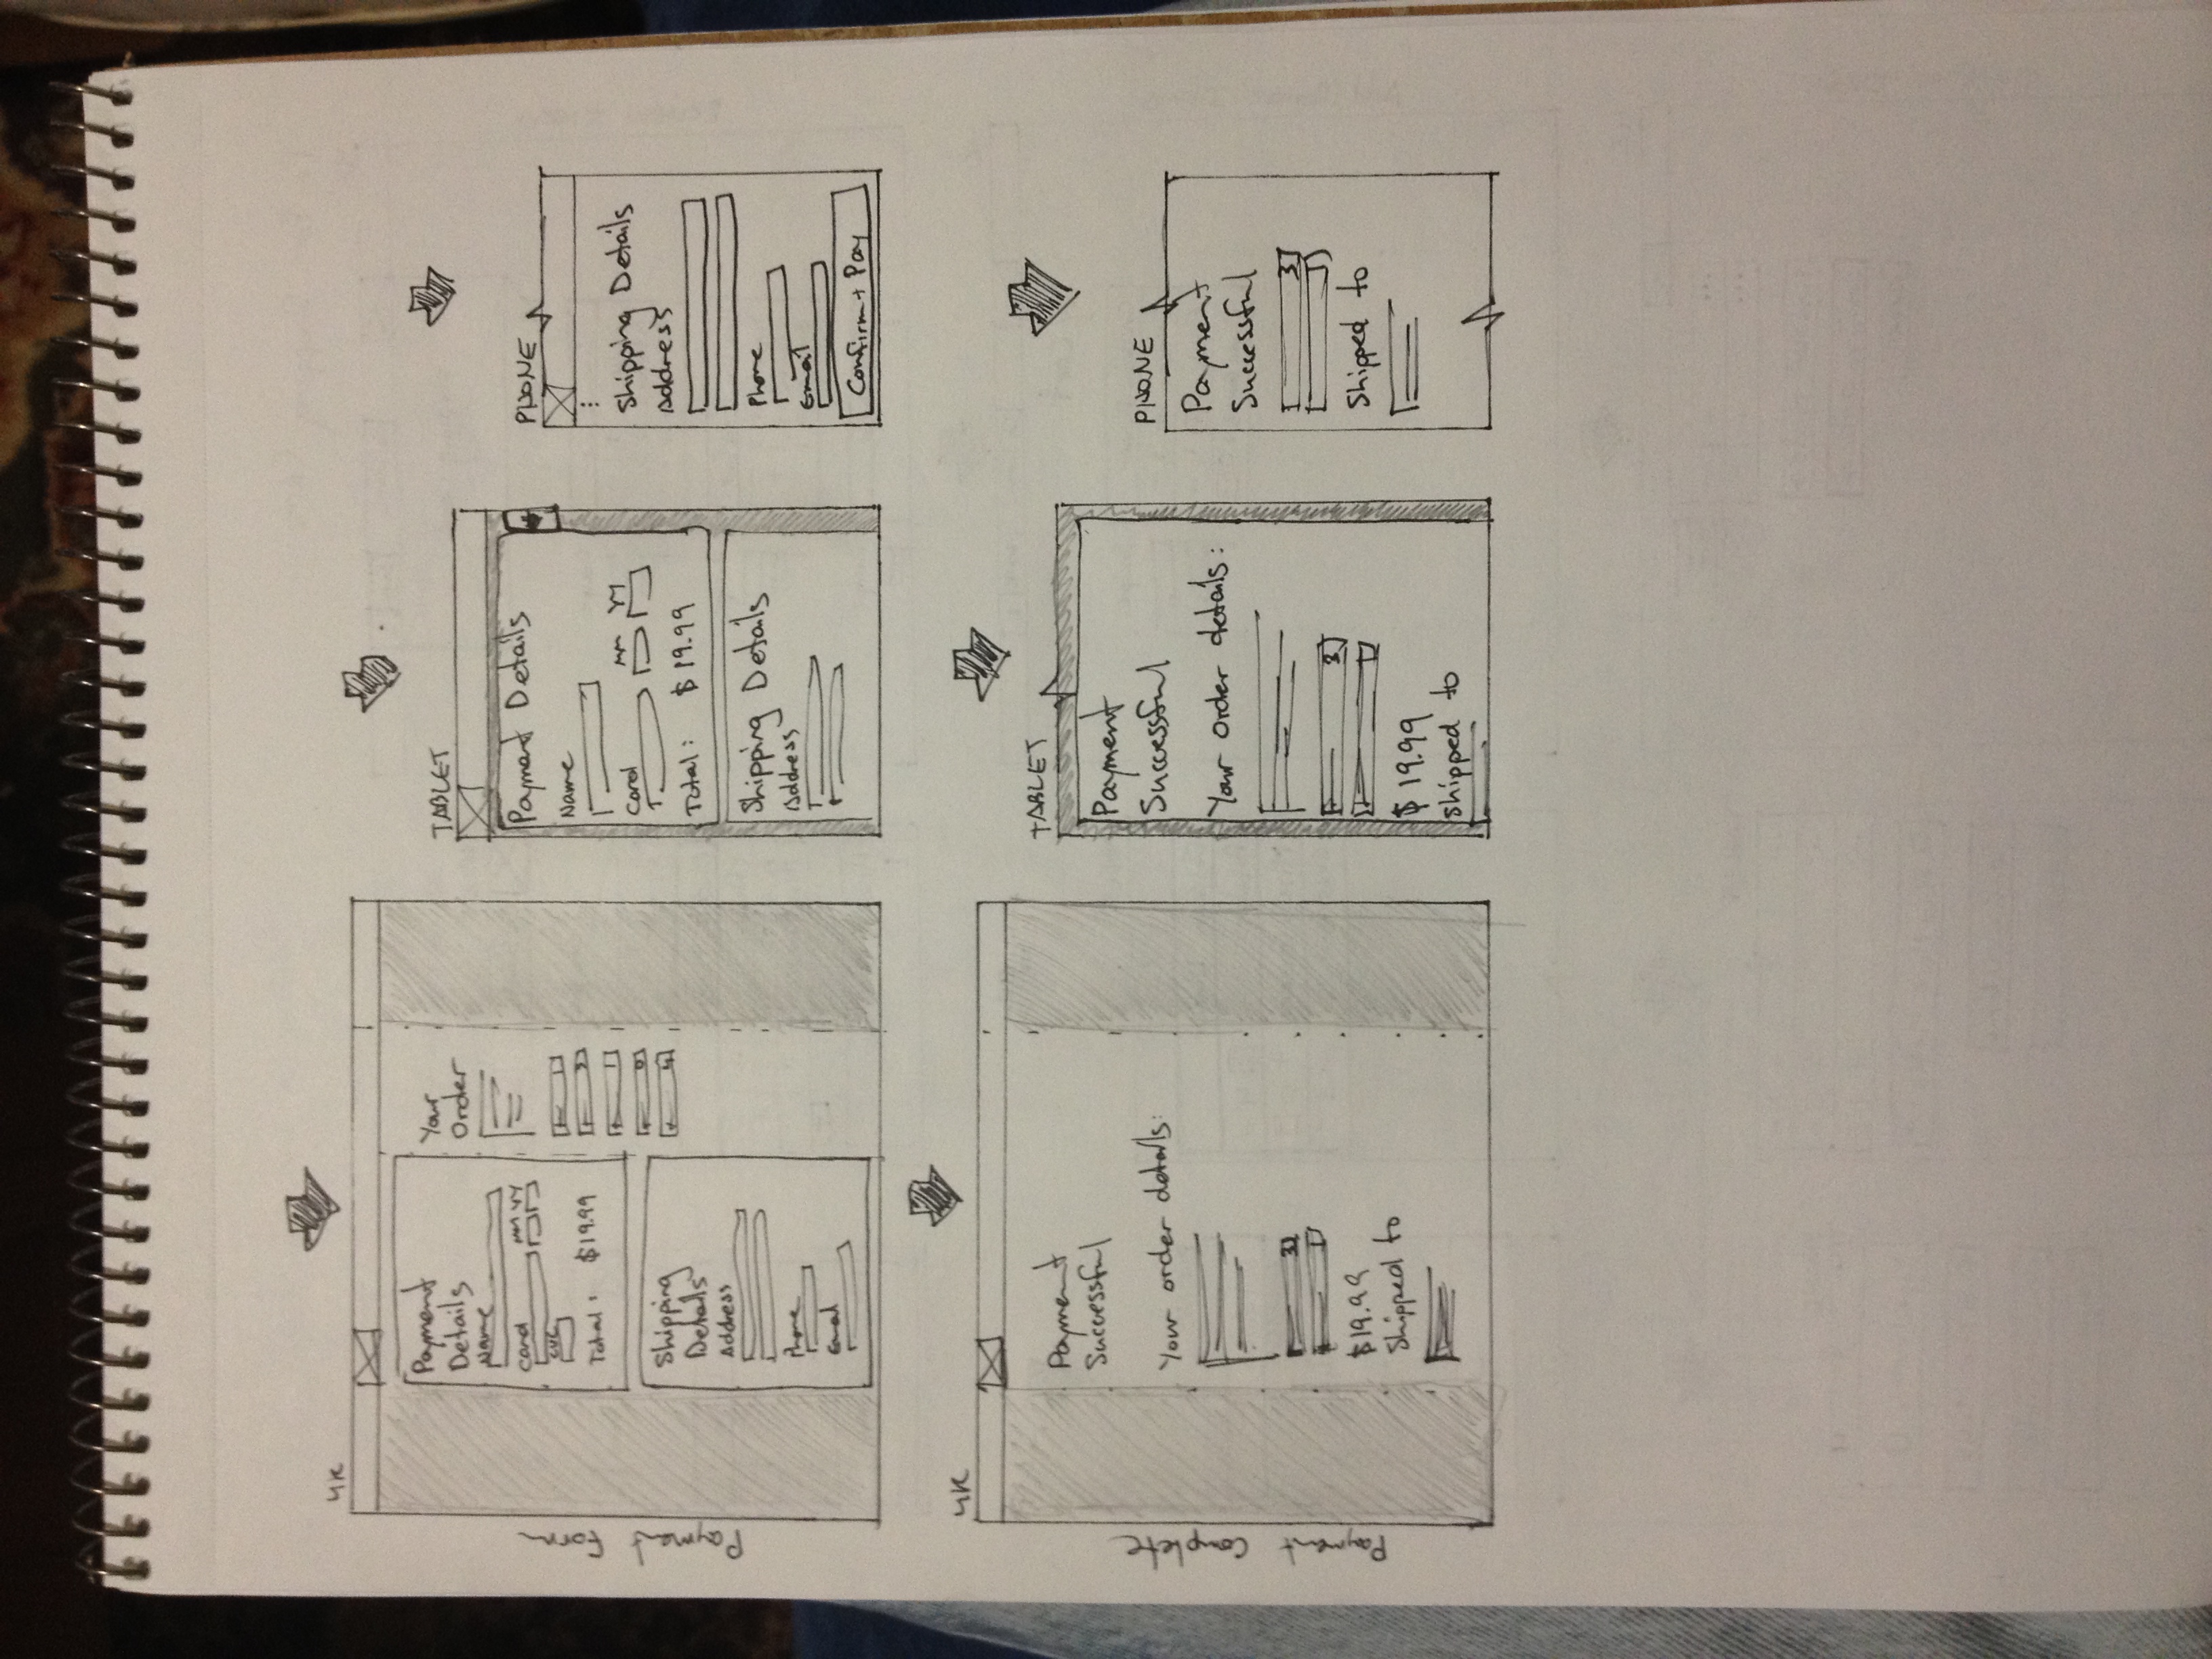 Payment Form
4K
Payment
Details
Name
Card MM YY
CVC
Total: $19.99
Shipping
Details
Address
Phone
Email
Your
Order
TABLET
Payment Details
Name
Card MM YY
Total: $19.99
Shipping Details
Address
PHONE
Shipping Details
Address
Phone
Email
Confirm + Pay
Payment Complete
4K
Payment
Successful
Your order details:
3
1
$19.99
Shipped to
TABLET
Payment
Successful
Your order details:
3
1
$19.99
Shipped to
PHONE
Payment
Successful
3
1
Shipped to